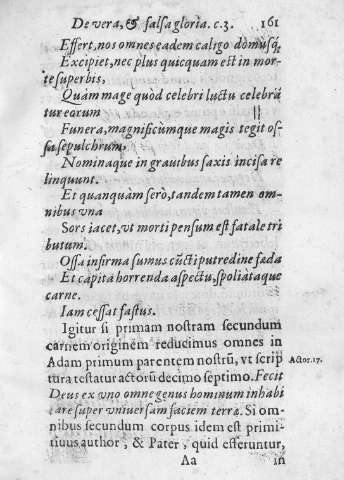 De vera, & falsa gloria. c. 3. 161
Effert, nos omnes eadem caligo domusq́;
Excipiet, nec plus quicquam est in mor-
te superbis,
Quàm mage quòd celebri luctu celebrã
tur eorum
Funera, magnificúmque magis tegit os-
sa sepulchrum,
Nominaque in grauibus saxis incisa re
linquunt.
Et quanquàm serò, tandem tamen om-
nibus vna
Sors iacet, vt morti pensum est fatale tri
butum.
Ossa infirma sumus cũcti putredine fœda
Et capita horrenda aspectu, spoliátaque
carne.
Iam cessat fastus.
Igitur si primam nostram secundum
carnem originem reducimus omnes in
Adam primum parentem nostrũ, vt scrip Actor. 17.
tura testatur actorũ decimo septimo. Fecit
Deus ex vno omne genus hominum inhabi
tare super vniuersam faciem terræ. Si om-
nibus secundum corpus idem est primi-
tiuus author, & Pater, quid efferuntur,
Aa in